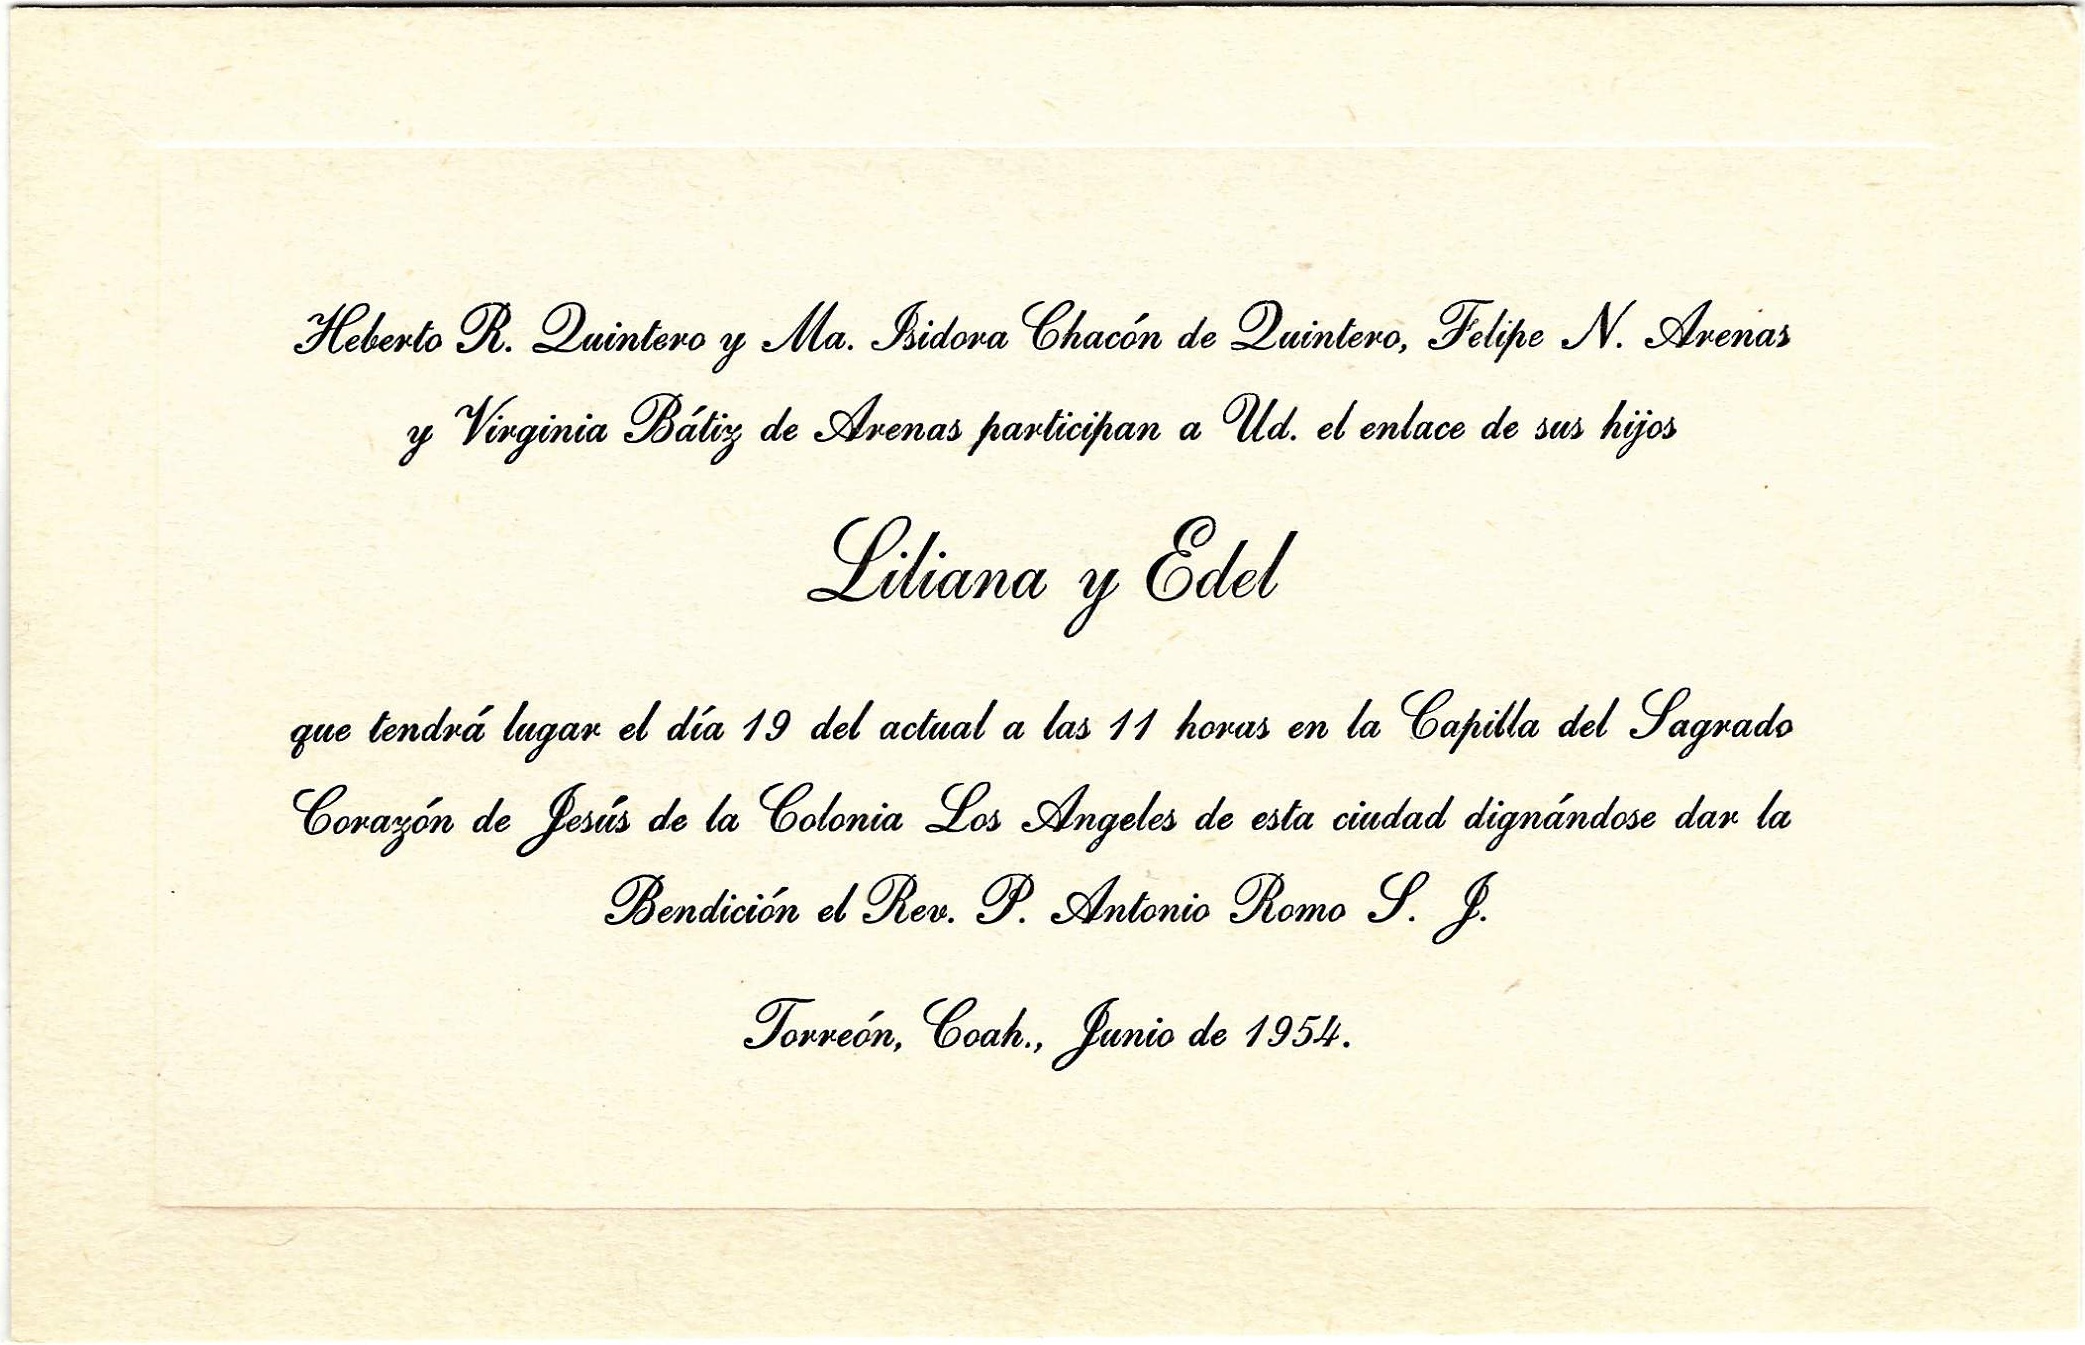 Heberto R. Quintero y Ma. Isidora Chacón de Quintero, Felipe N. Arenas
y Virginia Bátiz de Arenas participan a Ud. el enlace de sus hijos
Liliana y Edel
que tendrá lugar el día 19 del actual a las 11 horas en la Capilla del Sagrado
Corazón de Jesús de la Colonia Los Angeles de esta ciudad dignándose dar la
Bendición el Rev. P. Antonio Romo S. J.
Torreón, Coah., Junio de 1954.